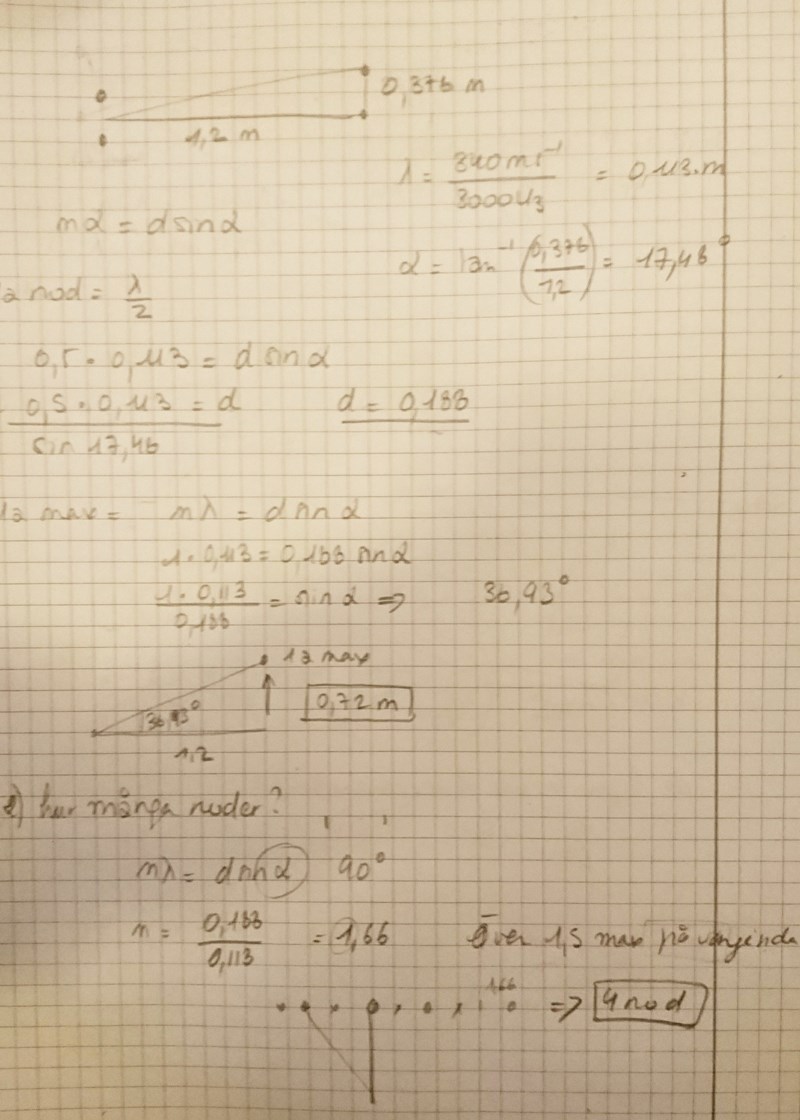 0,376 m
1,2 m
λ = 340 ms⁻¹ / 3000 Hz = 0,113 m
mλ = d sin α
α = tan⁻¹ (0,376 / 1,2) = 17,46°
1a nod = λ / 2
0,5 · 0,113 = d sin α
0,5 · 0,113 / sin 17,46 = d    d = 0,188
1a max = mλ = d sin α
1 · 0,113 = 0,188 sin α
1 · 0,113 / 0,188 = sin α ⇒ 36,93°
1a max
36,93°
0,72 m
1,2
hur många noder?
mλ = d sin α 90°
n = 0,188 / 0,113 = 1,66    Över 1,5 max på
1,66
⇒ 4 nod